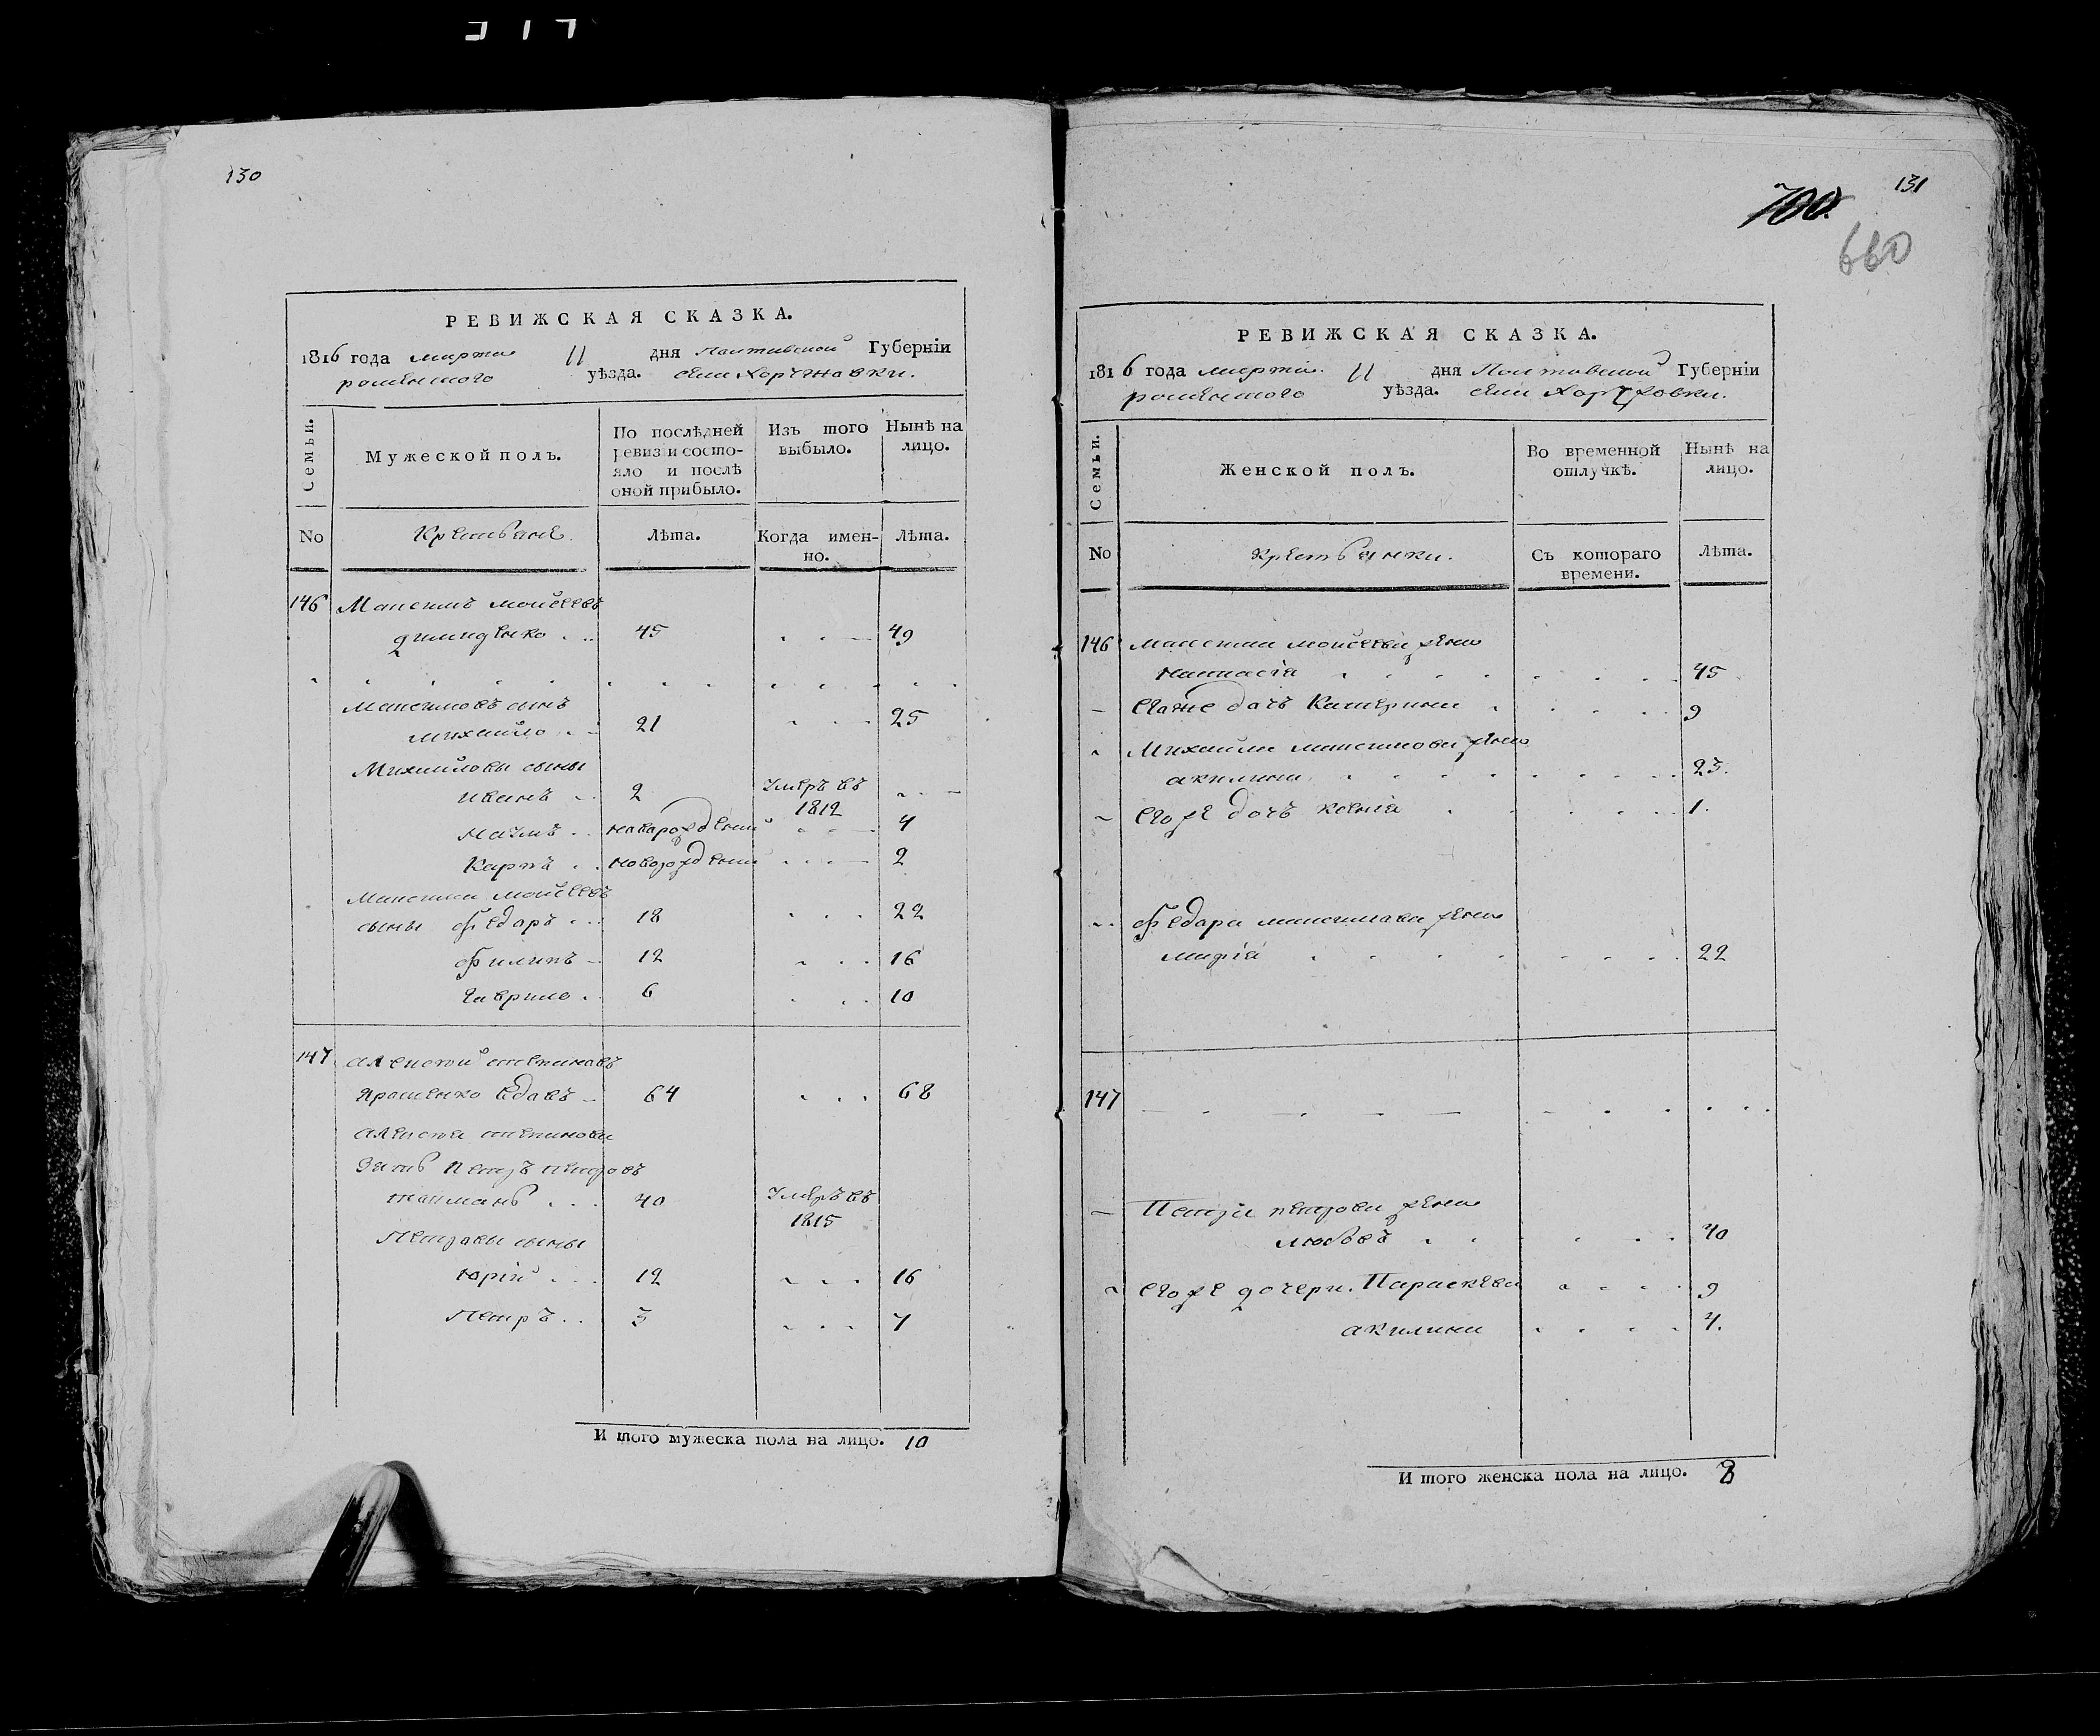 130
РЕВИЖСКАЯ СКАЗКА.
1816 года марта 11 дня Полтавской Губерніи
роменского уѣзда. села Хоружовки.
Семьи.
Мужеской полъ.
По послѣдней ревизіи состо-
яло и послѣ
оной прибыло.
Изъ того
выбыло.
Нынѣ на
лицо.
No
Крестьяне.
Лѣта.
Когда имен-
но.
Лѣта.
146 Максимъ мойсеевъ
45 49
Максимовъ сынъ
михайло 21 25
Михайловы сыны
иванъ 2 Умеръ въ 1812
Наумъ новорожденый 4
Карпъ новорожденый 2
Максима мойсеевъ
сыны Федоръ 18 22
Филипъ 12 16
Гаврило 6 10
147 алексей степановъ
Ярошенко вдовъ 64 68
алексея степанова
Зять петръ петровъ
40 Умеръ въ
1815
Петровы сыны
юрій 12 16
Петръ 3 7
И того мужеска пола на лицо. 10
131
700.
660
РЕВИЖСКАЯ СКАЗКА.
1816 года марта 11 дня Полтавской Губерніи
роменского уѣзда. села Хоружовки.
Семьи.
Женской полъ.
Во временной
отлучкѣ.
Нынѣ на
лицо.
No
крестьянки.
Съ котораго
времени.
Лѣта.
146 максима мойсеева жена
настасія 45
Егоже дочь Катерина 9
Михайла максимова жена
акилина 23.
Егоже дочь ксенія 1.
Федора максимова жена
марія 22
147
Петра петрова жена
любовъ 40
Егоже дочери. Параскева 9
акилина 4.
И того женска пола на лицо. 8